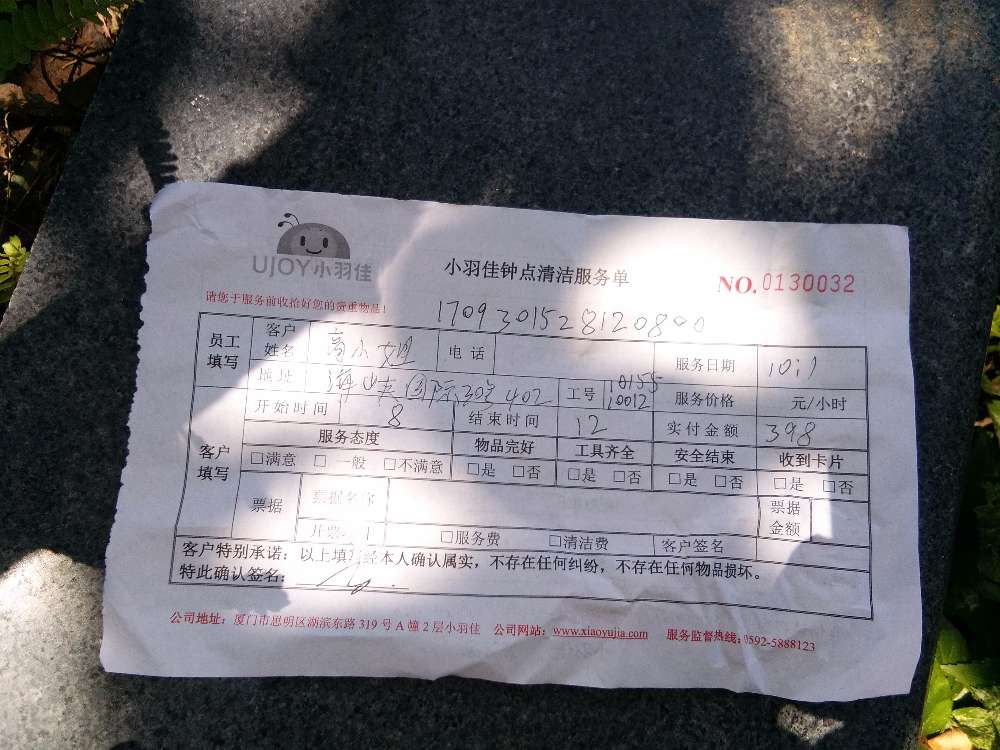 UJOY小羽佳
小羽佳钟点清洁服务单
NO.0130032
请您于服务前收拾好您的贵重物品!
1709301528120800
员工填写 客户姓名 高小姐 电话 服务日期 10:1
地址 海峡国际 402 工号 10155 10012 服务价格 元/小时
开始时间 8 结束时间 12 实付金额 398
客户填写 服务态度 物品完好 工具齐全 安全结束 收到卡片
□满意 □一般 □不满意 □是 □否 □是 □否 □是 □否 □是 □否
票据 票据名称 票据金额
开票 □服务费 □清洁费 客户签名
客户特别承诺:以上填写经本人确认属实,不存在任何纠纷,不存在任何物品损坏。
特此确认签名:
公司地址:厦门市思明区湖滨东路319号A幢2层小羽佳 公司网站:www.xiaoyujia.com 服务监督热线:0592-5888123